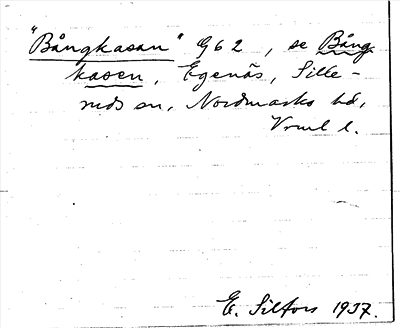 "Bångkasan" G62, se Bång
kasen, Egenäs, Sille-
ruds sn, Nordmarks hd,
Vrml l.
E. Silfors 1937.